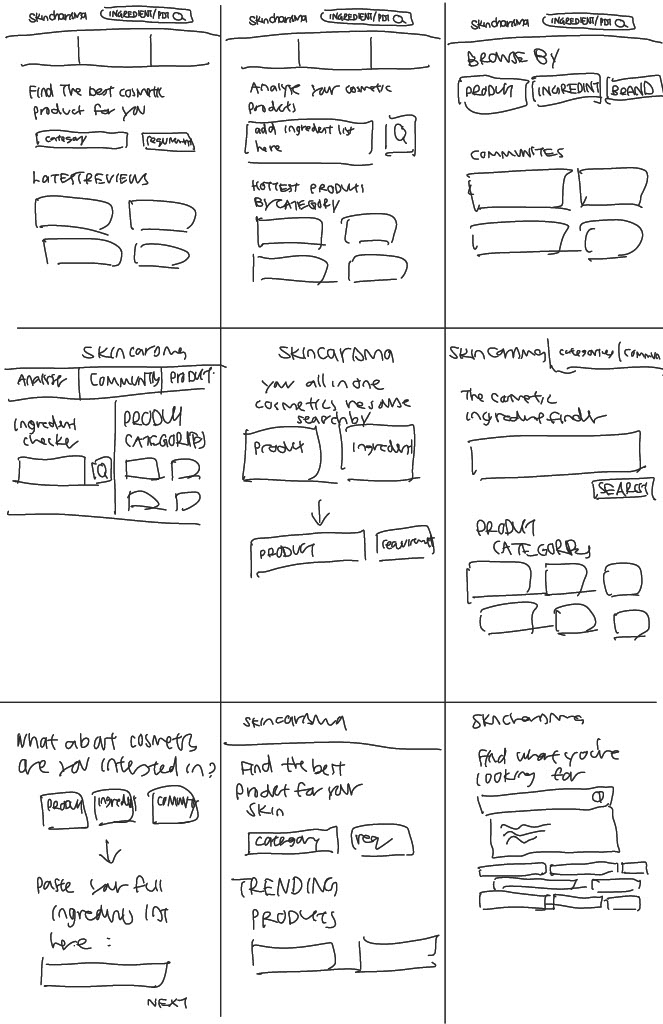 skincharisma INGREDIENT/PDT
Find The best cosmetic
product for you
category requirement
LATEST REVIEWS
skincharisma INGREDIENT/PDT
Analyse your cosmetic
products
add ingredient list
here
HOTTEST PRODUCTS
BY CATEGORY
skincharisma INGREDIENT/PDT
BROWSE BY
PRODUCT INGREDIENT BRAND
COMMUNITIES
skincarisma
Analyse Community Product
ingredient
checker
PRODUCT
CATEGORIES
SKINCARISMA
your all in one
cosmetics resource
search by
Product Ingredient
PRODUCT requirements
SKINCARISMA categories commun
The cosmetic
ingredient finder
SEARCH
PRODUCT
CATEGORIES
What about cosmetics
are you interested in?
Product Ingredient Community
Paste your full
ingredients list
here :
NEXT
skincarisma
Find the best
Product for your
skin
category req
TRENDING
PRODUCTS
skincharisma
Find what you're
looking for